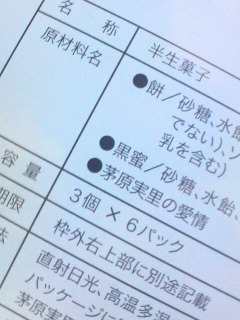 名 称
半生菓子
原材料名
●餅／砂糖、水飴
でない)、ソ
乳を含む)
●黒蜜／砂糖、水飴、
●茅原実里の愛情
容量
3個 × 6パック
期限
枠外右上部に別途記載
法
直射日光、高温多湿
パッケージに
茅原実